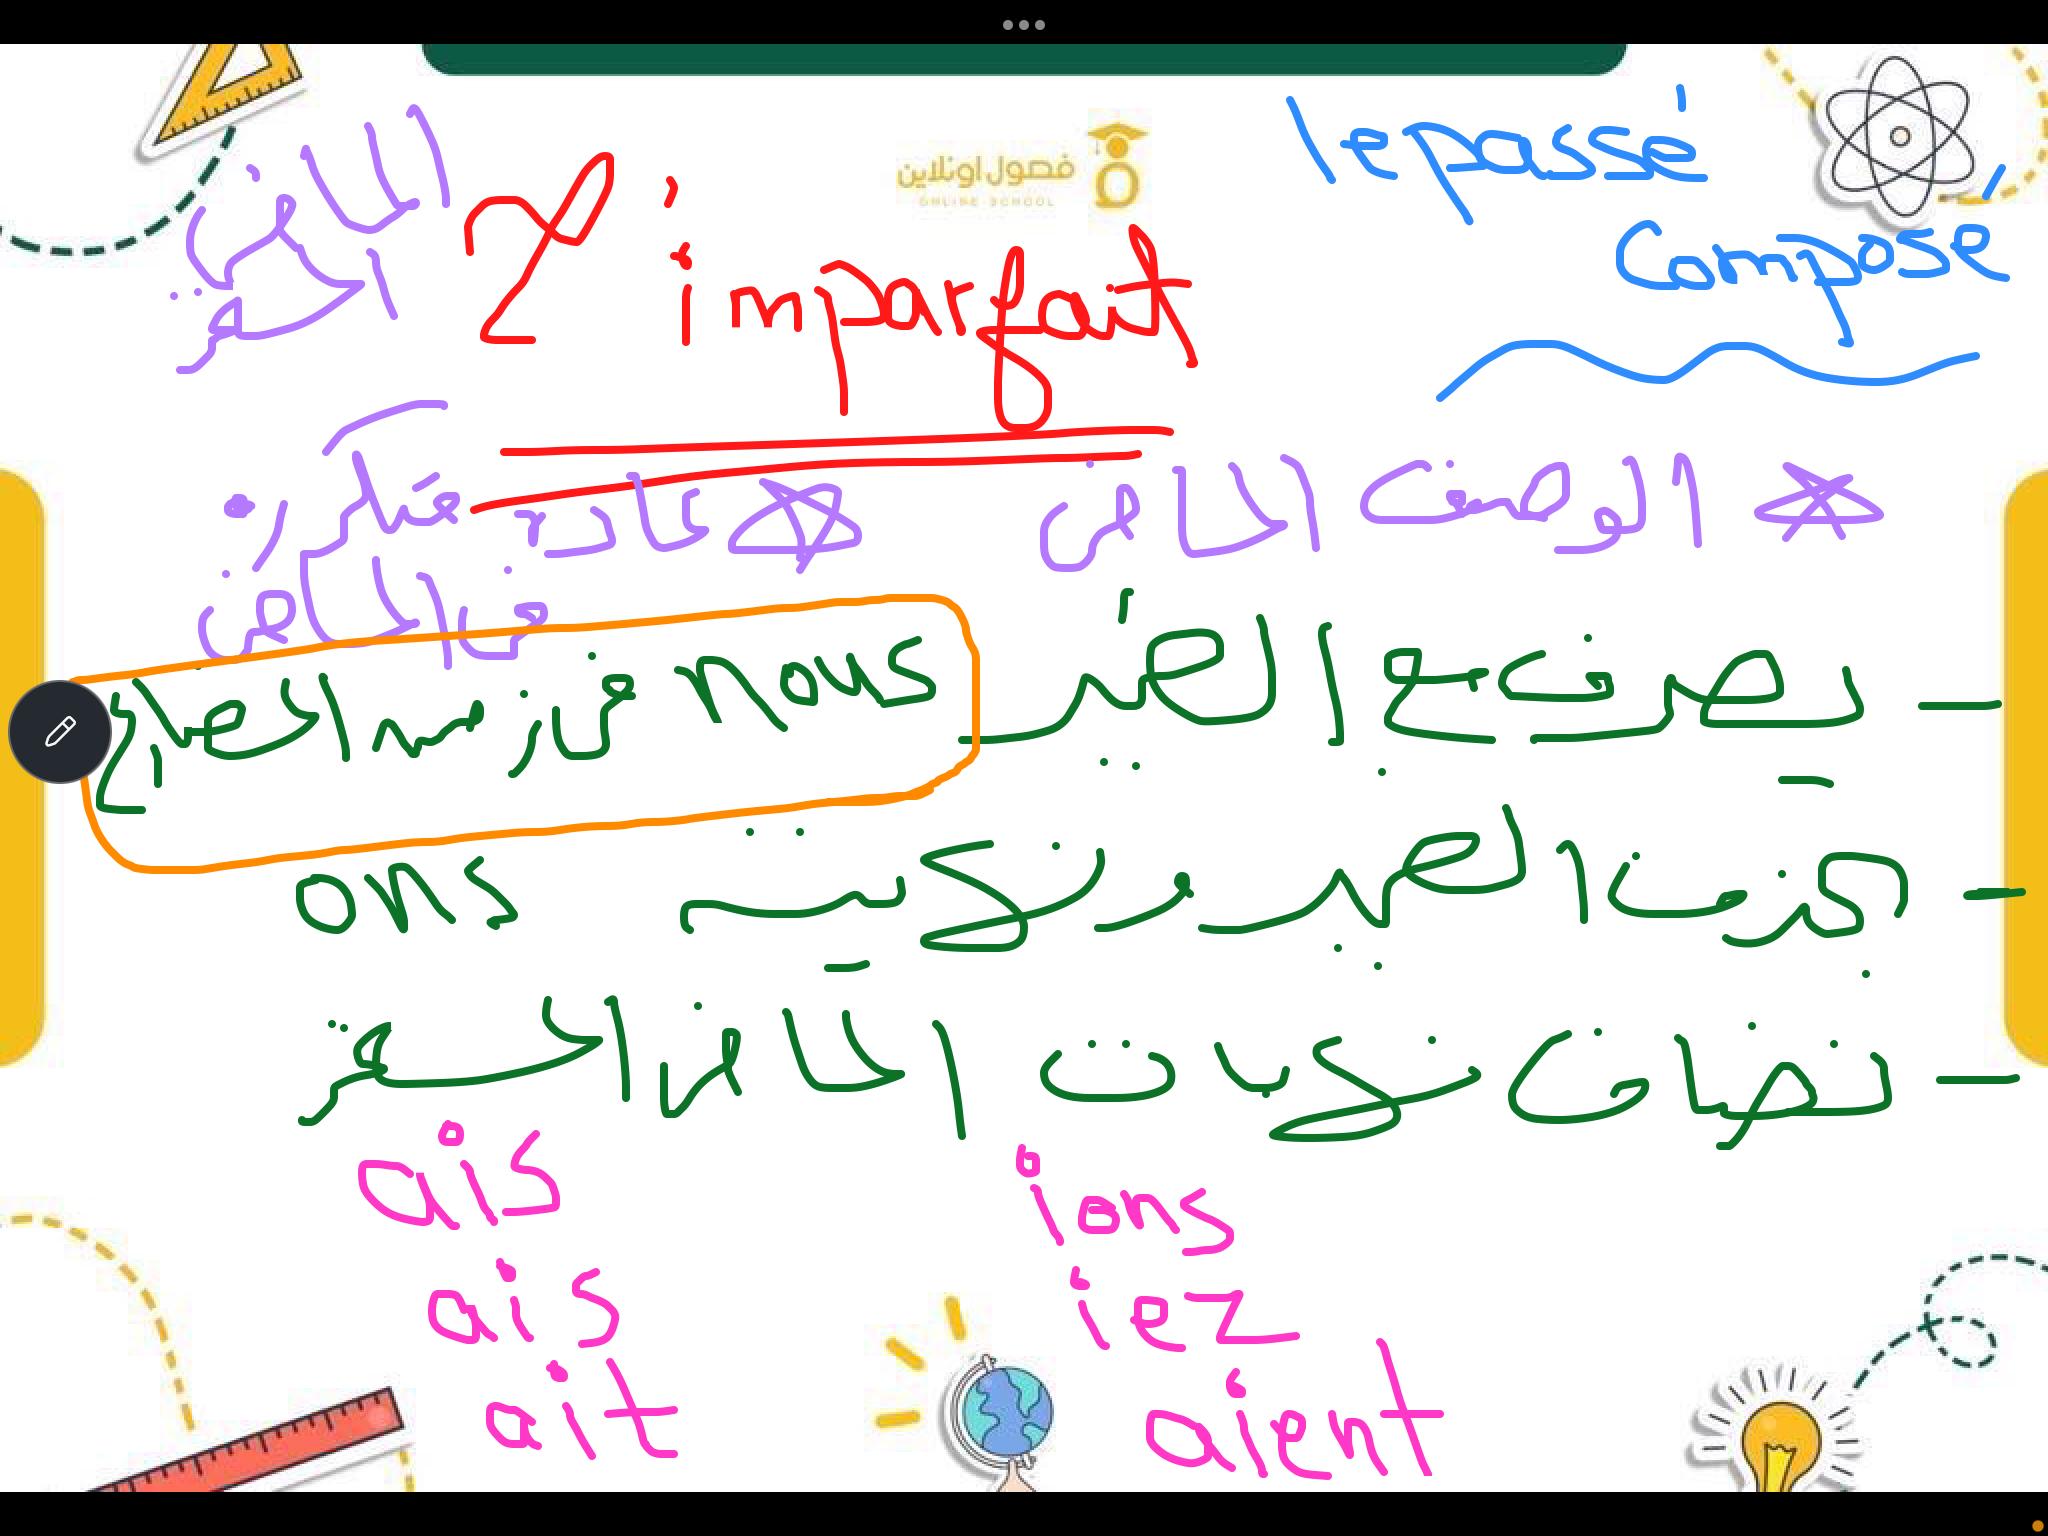 le passé
composé
فصول اونلاين
ONLINE SCHOOL
الماضي
المستمر
l'imparfait
☆ الوصف الماضي
☆ عادة متكررة
في الماضي
- يصرف مع الضمير nous في زمن المضارع
- نحذف الضمير ونحذف ons
- تضاف نهايات الماضي المستمر
ais
ais
ait
ions
iez
aient